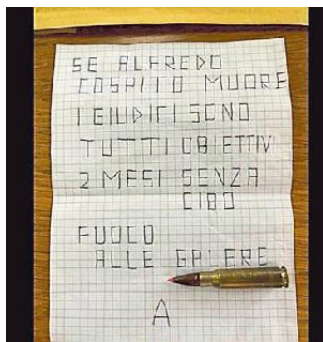 SE ALFREDO
COSPITO MUORE
I GIUDICI SONO
TUTTI OBIETTIVI
2 MESI SENZA
CIBO
FUOCO
ALLE GALERE
A